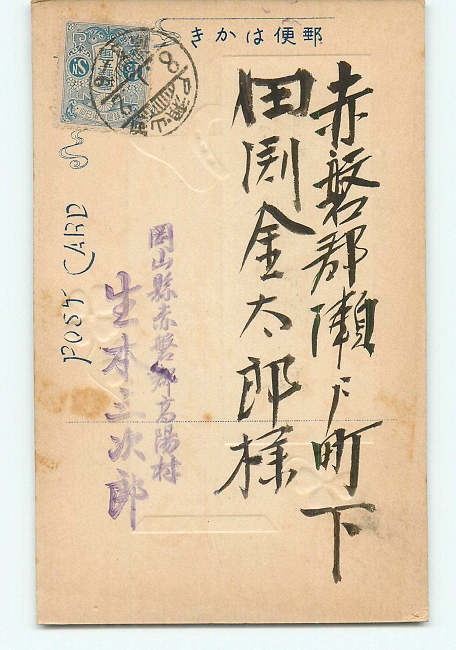 きかは便郵
赤磐郡瀬戸町下
田渕金太郎様
岡山縣赤磐郡高陽村
生本三次郎
POST CARD